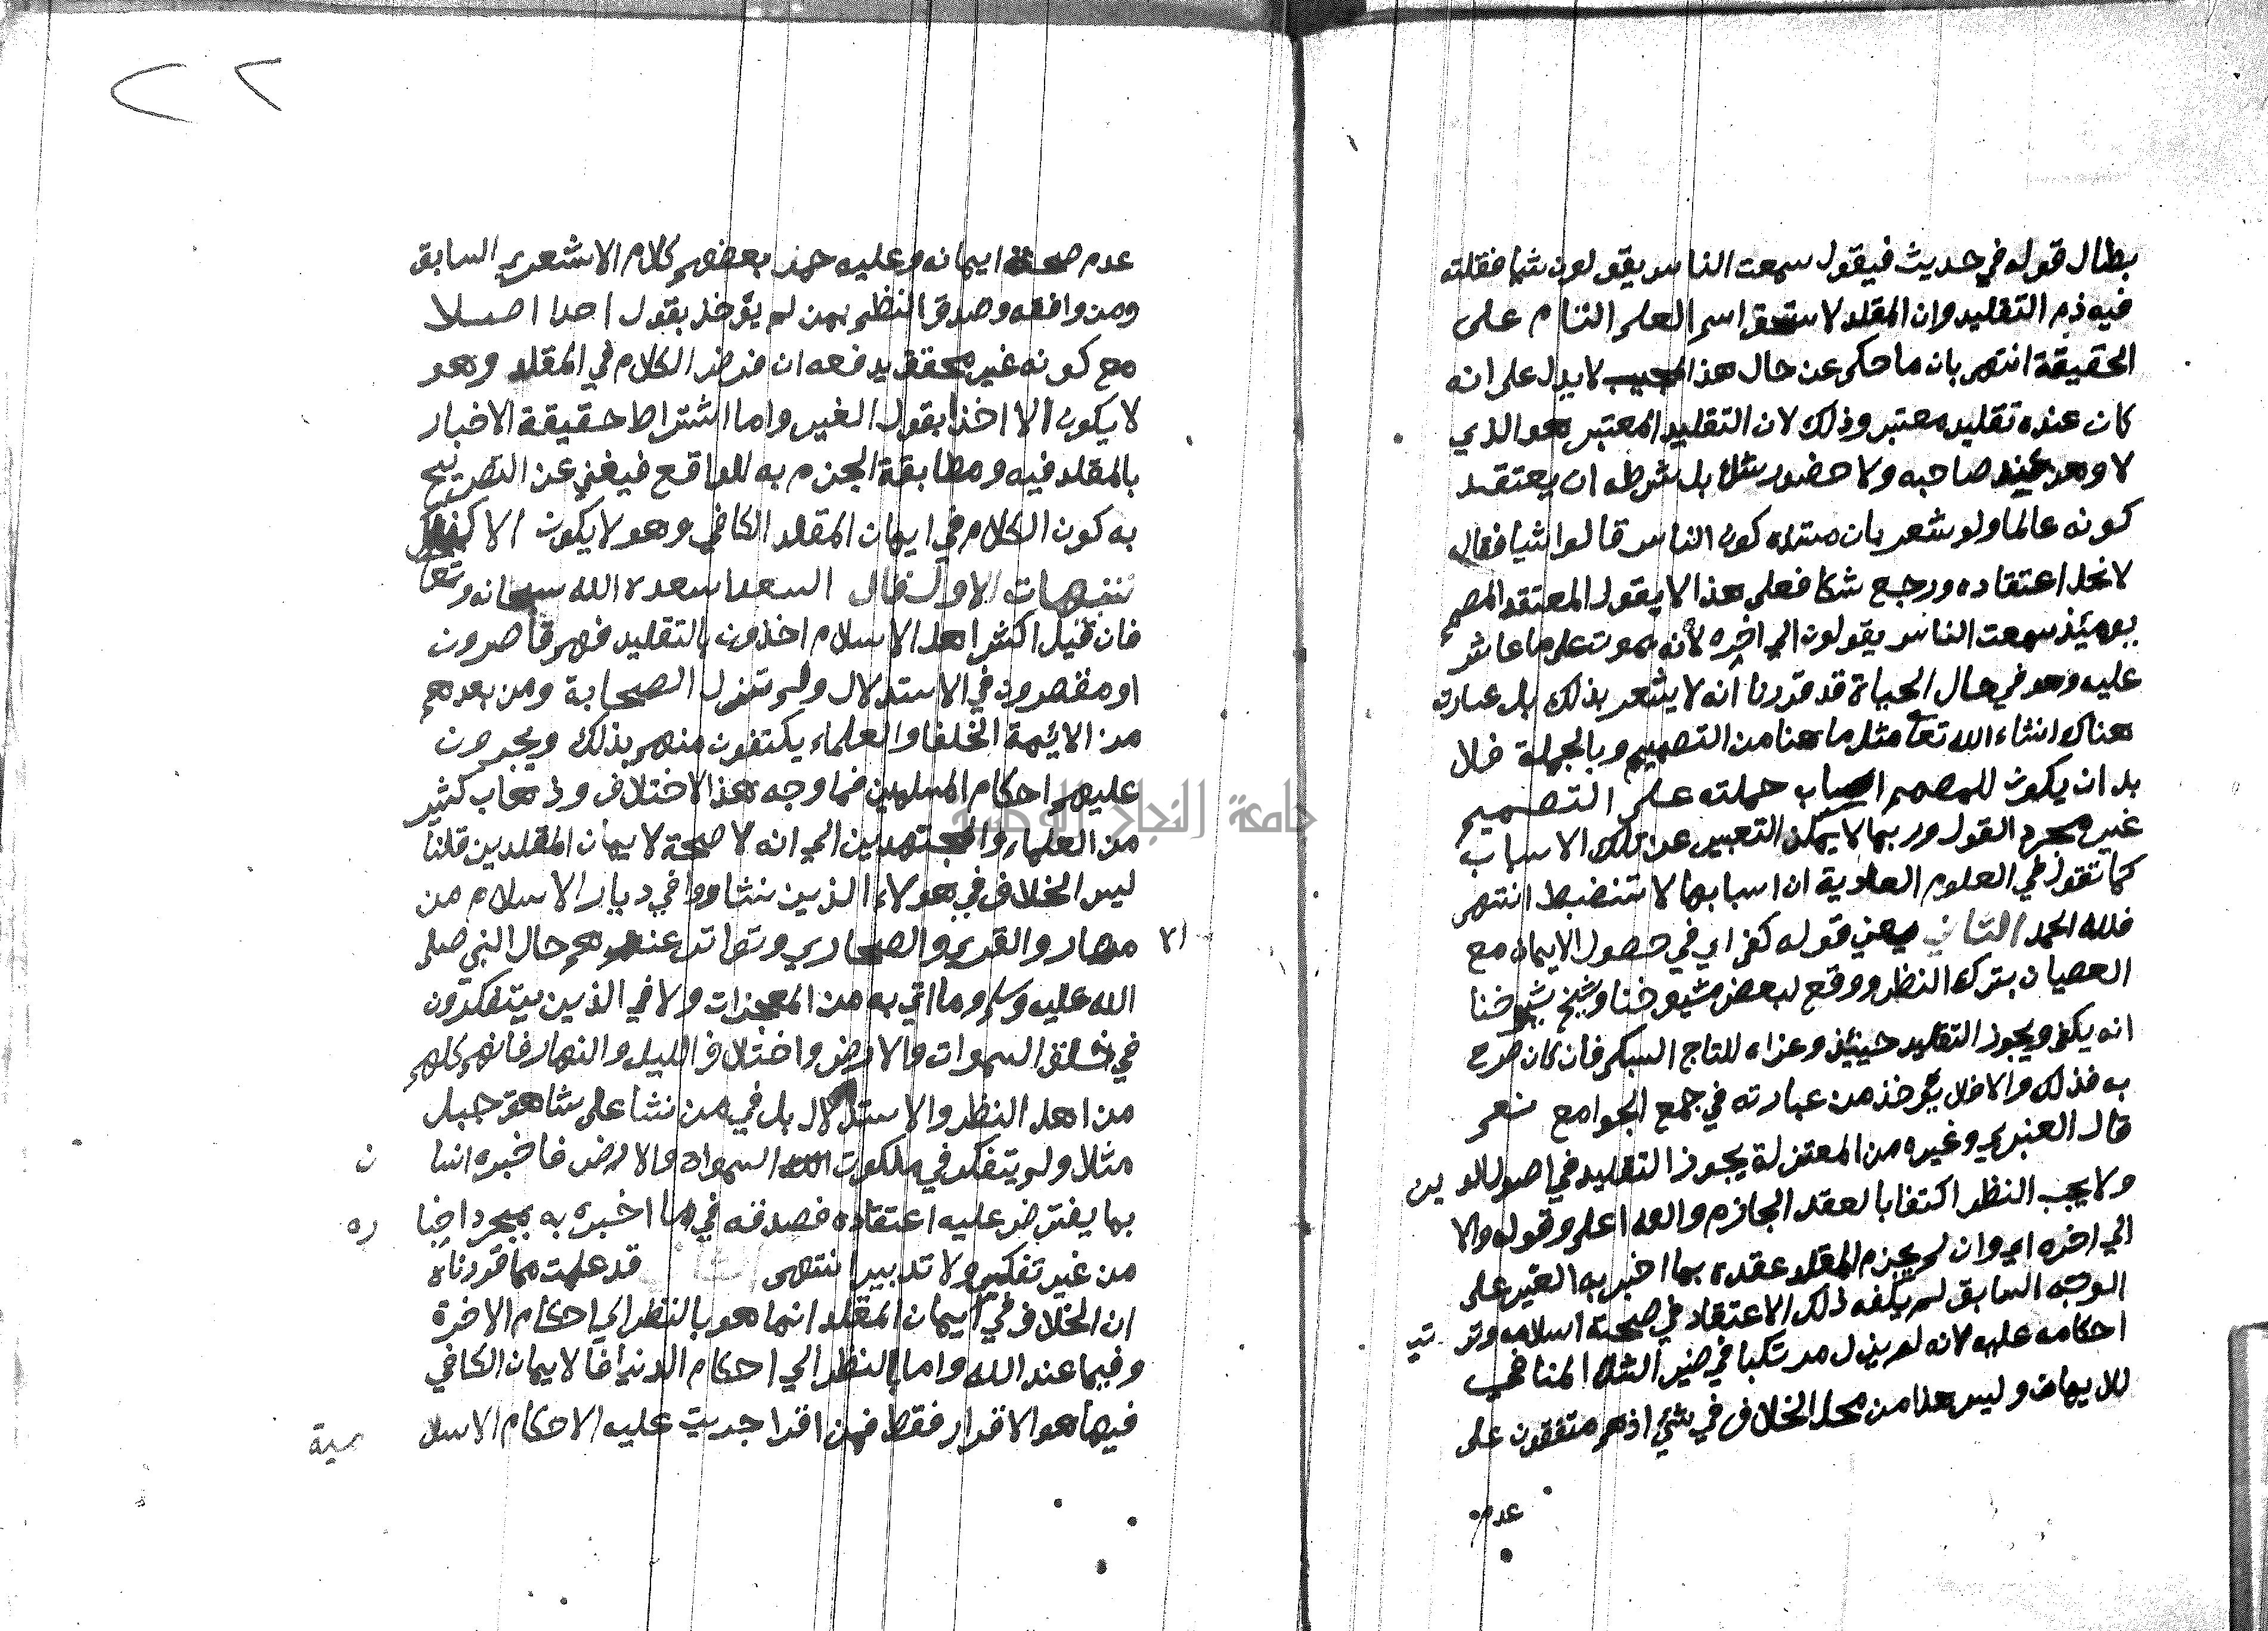 بطال قوله في حديث فيقول سمعت الناس يقولون شيا فقلته
فيه ذم التقليد وان المقلد لا يستحق اسم العلم التام على
الحقيقة انتهى بان ما حكي عن حال هذا المجيب لا يدل على انه
كان عنده تقليد معتبر وذلك لان التقليد المعتبر هو الذي
لا وهن عند صاحبه ولا حضور شك بل شرطه ان يعتقد
كونه عالما ولو شعر بان مستنده كون الناس قالوا شيا فقال
لانحل اعتقاده ورجع شكا فعلى هذا لا يقول المعتقد المصمم
يومئذ سمعت الناس يقولون الي اخره لانه يموت على ما عاش
عليه وهو في حال الحياة قد قررنا انه لا يشعر بذلك بل عبارته
هناك انشاء الله تعا مثل ما هنا من التصميم وبالجملة فلا
بد ان يكون للمصمم اسباب حملته على التصميم
غير مجرد القول وربما لا يمكن التعبير عن تلك الاسباب
كما تقول في العلوم العادية ان اسبابها لا تنضبط انتهى
فلله الحمد الثاني يعني قوله كفى اي في حصول الايمان مع
العصيان بترك النظر ووقع لبعض مشيوخنا وشيخ شيوخنا
انه يكفي ويجوز التقليد حينئذ وعزاه للتاج السبكي فان كان صرح
به فذلك والا فلا يؤخذ من عبارته في جمع الجوامع نعم
قال العنبري وغيره من المعتزلة يجوز التقليد في اصول الدين
ولا يجب النظر اكتفا بالعقد الجازم والله اعلم وقوله والا
الي اخره اي وان لم يجزم المقلد عقده بما اخبر به الغير على
الوجه السابق لم يكفه ذلك الاعتقاد في صحة اسلامه وترتيب
احكامه عليه لانه لم يزل مرتكبا في ضير الشك المنافي
للايمان وليس هذا من محل الخلاف في شئ اذ هم متفقون على
عدم
٢٢
عدم صحة ايمانه وعليه حمل بعضهم كلام الاشعري السابق
ومن وافقه وصدق النظم بمن لم يؤخذ بقول احد اصلا
مع كونه غير محقق يدفعه ان فرض الكلام في المقلد وهو
لا يكون الا اخذا بقول الغير واما اشتراط حقيقة الاخبار
بالمقلد فيه ومطابقة الجزم به للواقع فيغني عن التصريح
به كون الكلام في ايمان المقلد الكافي وهو لا يكون الا كذلك
تنبيهات الاول قال السعد اسعده الله سبحانه وتعا
فان قيل اكثر اهل الاسلام اخذون بالتقليد فهم قاصرون
او مقصرون في الاستدلال ولم تزل الصحابة ومن بعدهم
من الائمة الخلفا والعلماء يكتفون منهم بذلك ويجرون
عليهم احكام المسلمين فما وجه هذا الاختلاف وذهاب كثير
من العلماء والمجتهدين الي انه لا صحة لايمان المقلدين قلنا
ليس الخلاف في هولاء الذين نشاووا في ديار الاسلام من
الا مصار والقري والصحاري وتواتر عندهم حال النبي صلى
الله عليه وسلم وما اتي به من المعجزات ولا في الذين يتفكرون
في خلق السموات والارض واختلاف الليل والنهار فانهم كلهم
من اهل النظر والاستدلال بل في من نشا على شاهق جبل
مثلا ولم يتفكر في ملكوت السموات والارض فاخبره انسان
بما يفترض عليه اعتقاده فصدقه في ما اخبره به بمجرد اخباره
من غير تفكير ولا تدبير انتهى قد علمت مما قررناه
ان الخلاف في ايمان المقلد انما هو بالنظر الي احكام الاخرة
وفيما عند الله واما بالنظر الي احكام الدنيا فالايمان الكافي
فيها هو الاقرار فقط فمن اقرا جريت عليه الاحكام الاسلامية
جامعة النجاح الوطنية